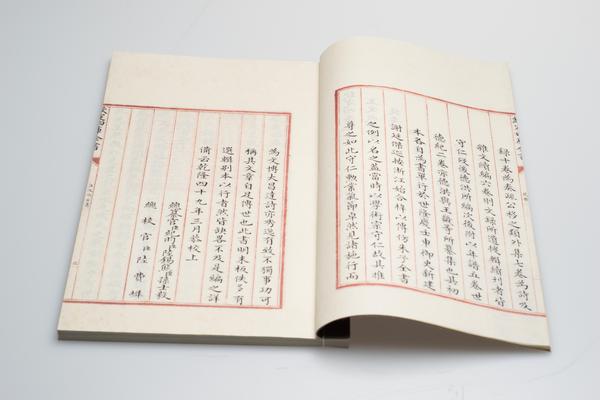 録十卷為奏疏公移之類外集七卷為詩及
雜文續編六卷則文録所遺搜輯續刋者皆
守仁歿後德洪所編次後附以年譜五卷世
德紀二卷亦德洪與王畿等所纂集也其初
本各自為書單行於世隆慶壬申御史新建
謝廷傑巡按浙江始合梓以傳仿朱子全書
之例以名之蓋當時以學術宗守仁故其推
尊之如此守仁勲業氣節卓然見諸施行而
為文博大昌達詩亦秀逸有致不獨事功可
稱其文章自足傳世也此書明末板佚多有
選輯别本以行者然皆缺畧不及是編之詳
備云乾隆四十九年三月恭校上
總纂官臣紀昀臣陸錫熊臣孫士毅
總校官臣陸費墀